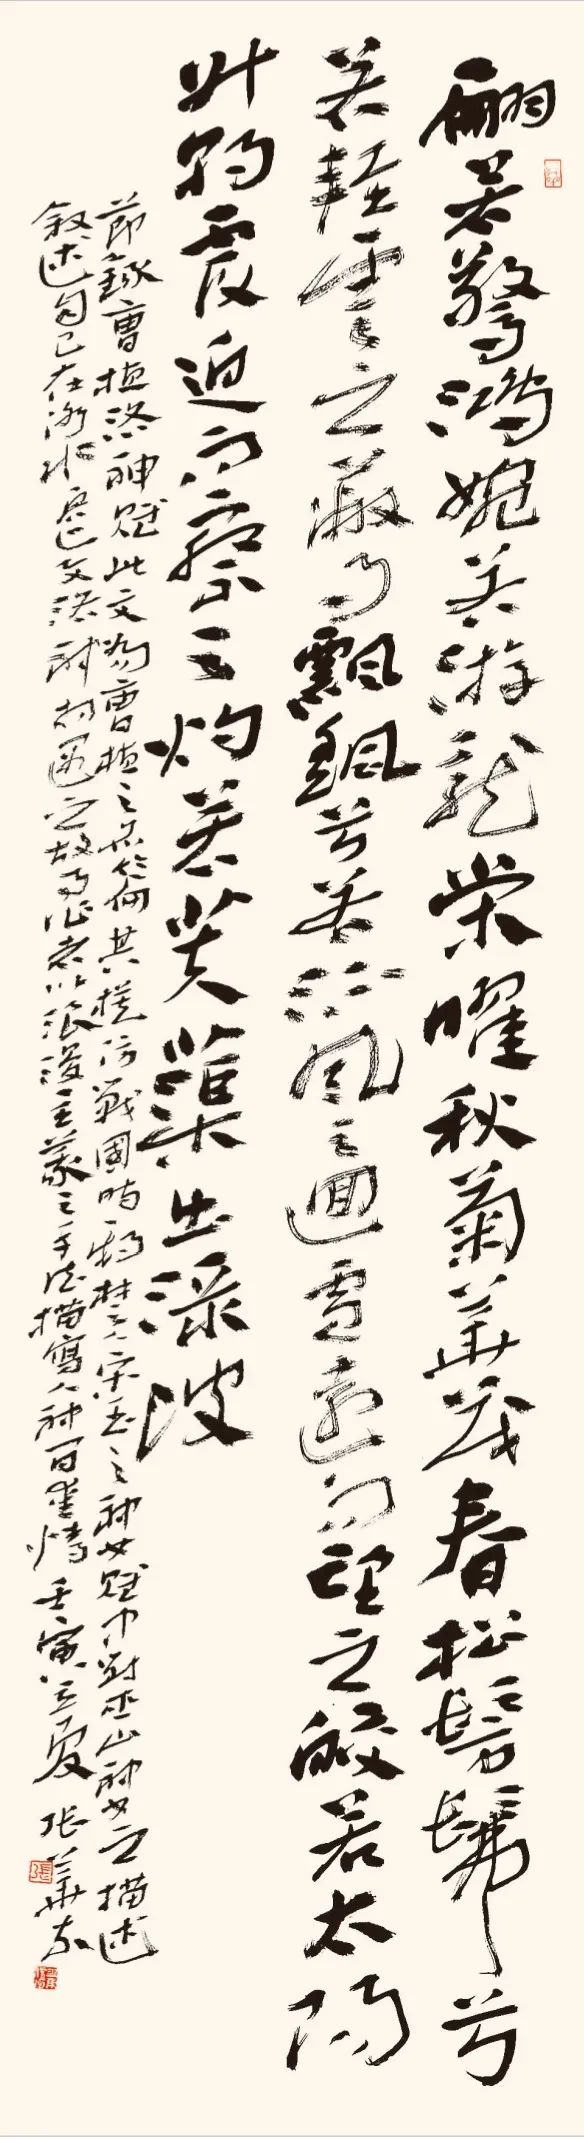 翩若驚鴻婉若游龍榮曜秋菊華茂春松髣髴兮
若輕雲之蔽月飄飖兮若流風之迴雪遠而望之皎若太陽
升朝霞迫而察之灼若芙蕖出淥波
節錄曹植洛神賦此文為曹植之其模仿戰國時期楚人宋玉之神女賦中對巫山神女之描述
敘述自己在洛水邊與洛神相遇之故事作者以浪漫主義之手法描寫人神百愛情壬寅立夏張華東